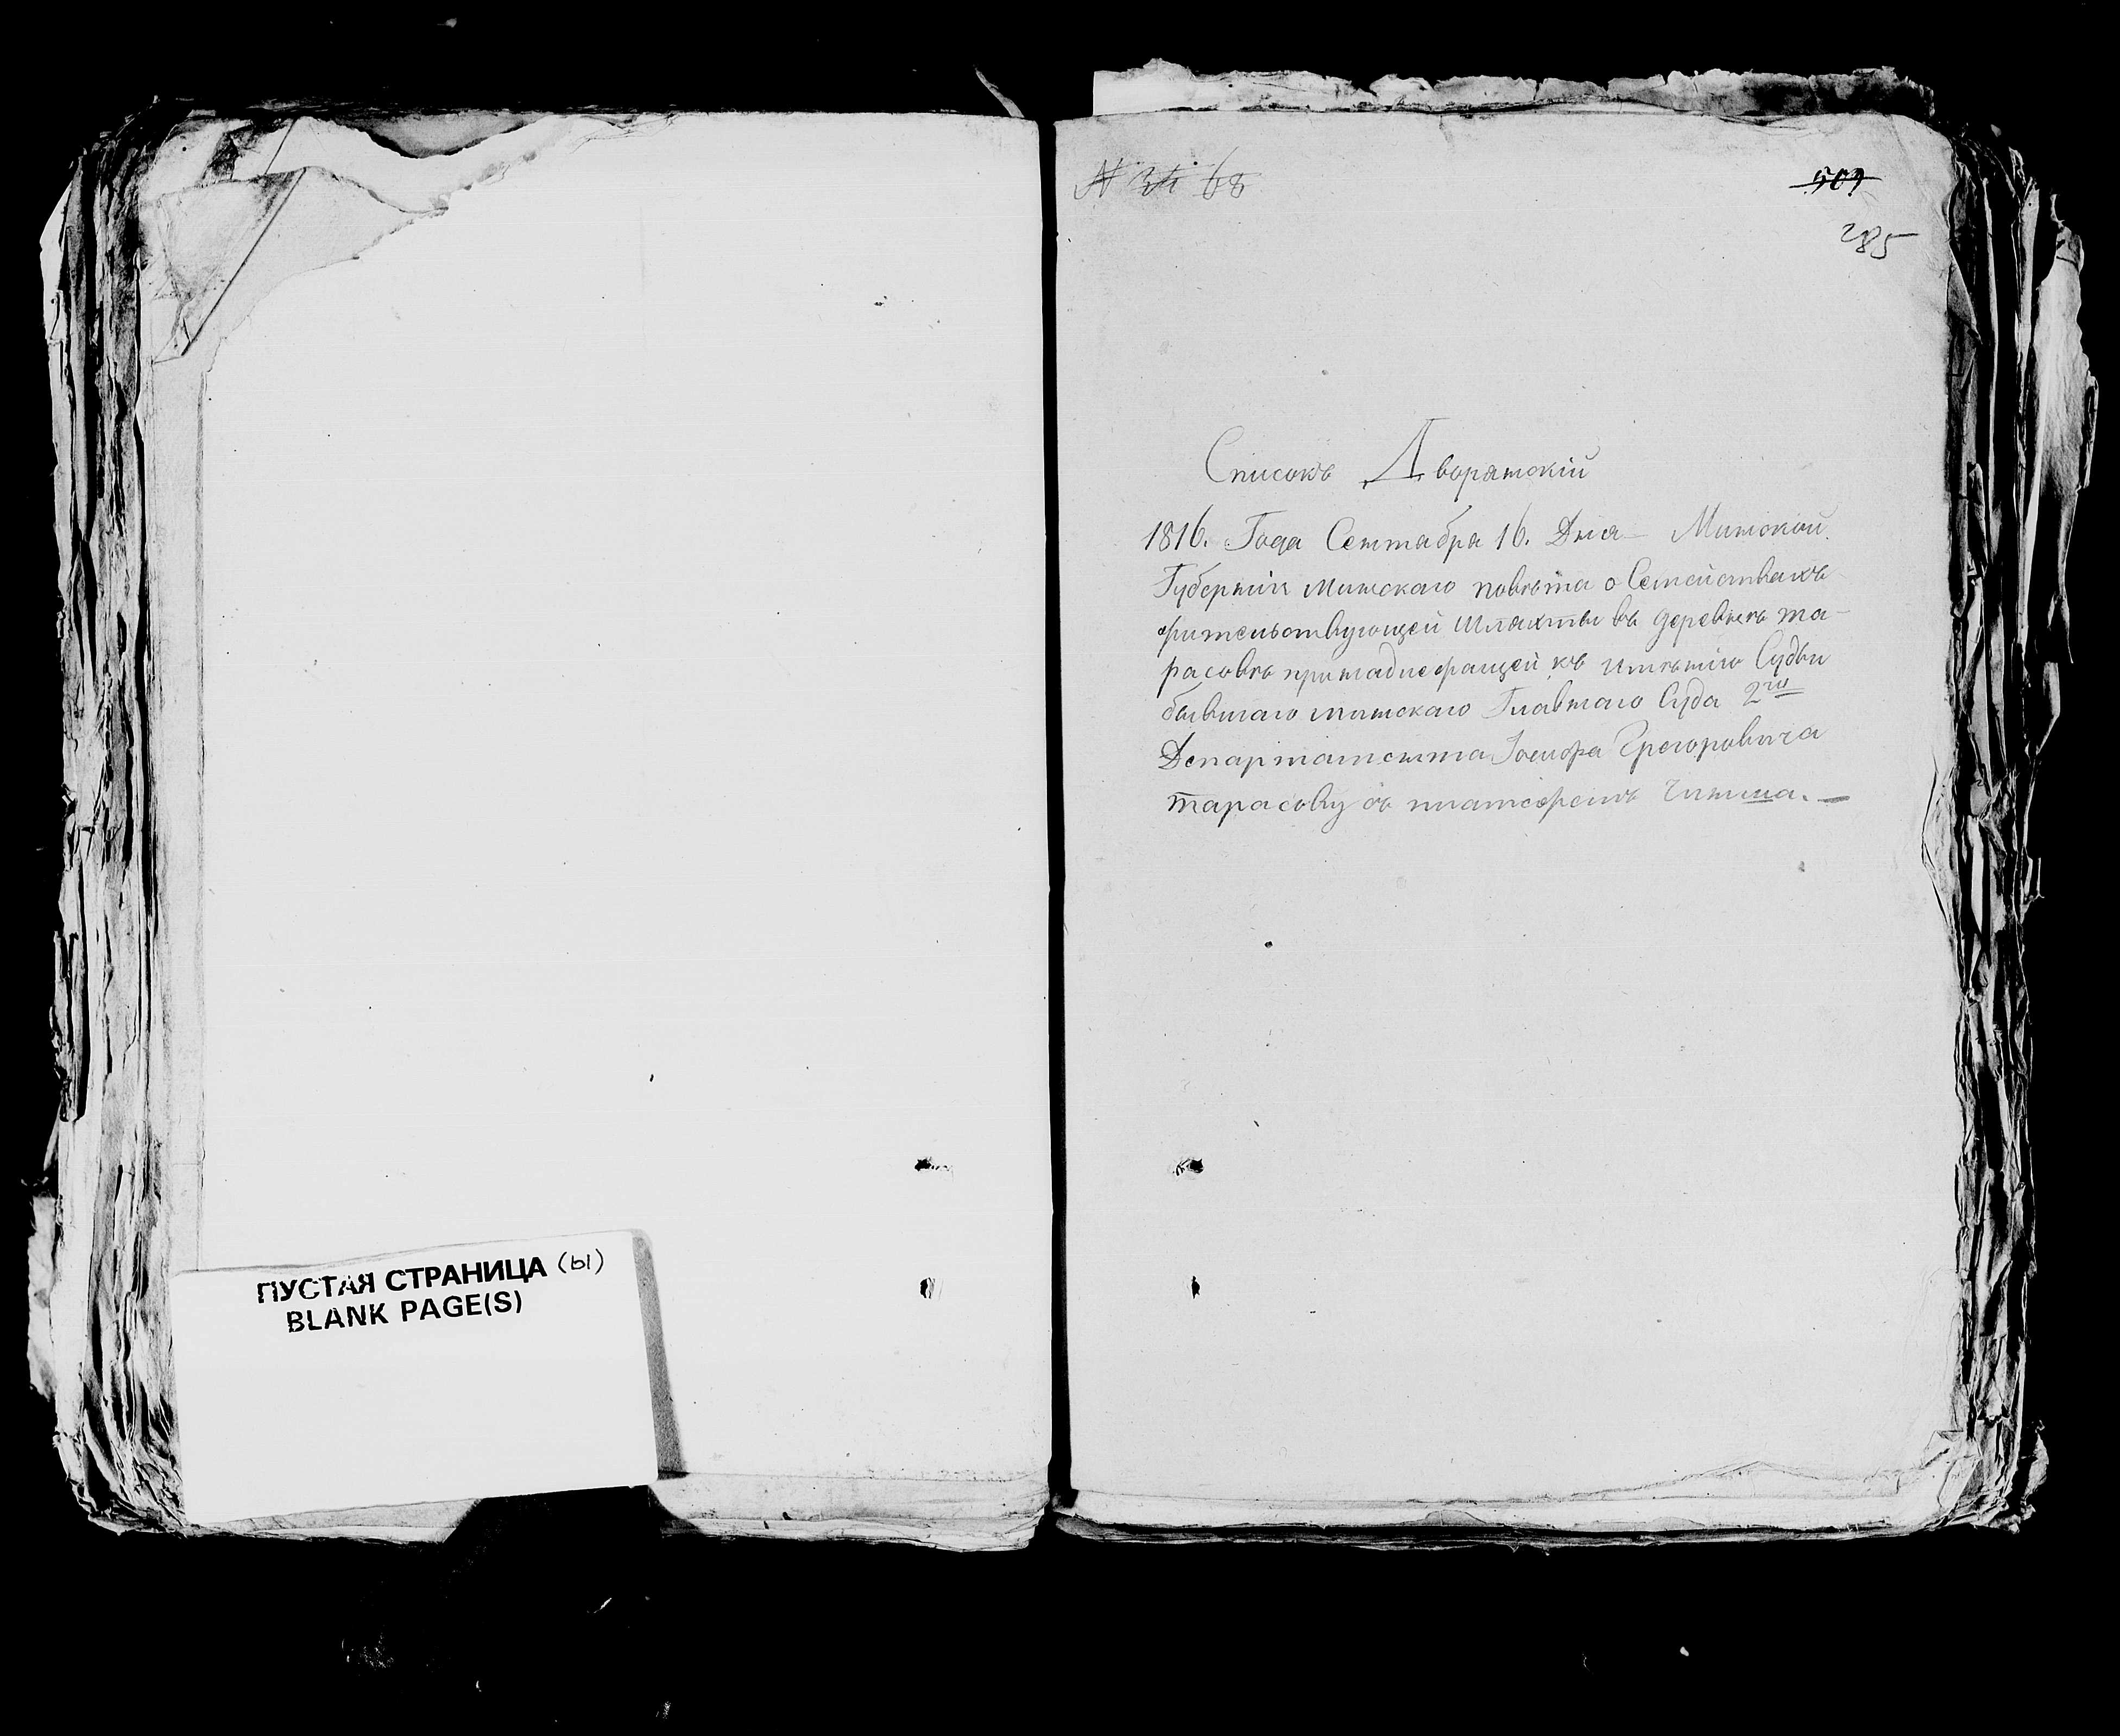 ПУСТАЯ СТРАНИЦА (ы)
BLANK PAGE(S)
N 68
509
285
Списокъ Дворянскій
1816. Года Сентабра 16. Дня — Минской
Губерніи Минскаго повѣта о Семействахъ
жительствующей Шляхты въ деревнѣ та-
расовѣ принадлежащей къ имѣнію Судьи
бывшаго минскаго Главнаго Суда 2го
Департамента Іосифа Грегоровича
тарасову съ платежемъ Чинша. —